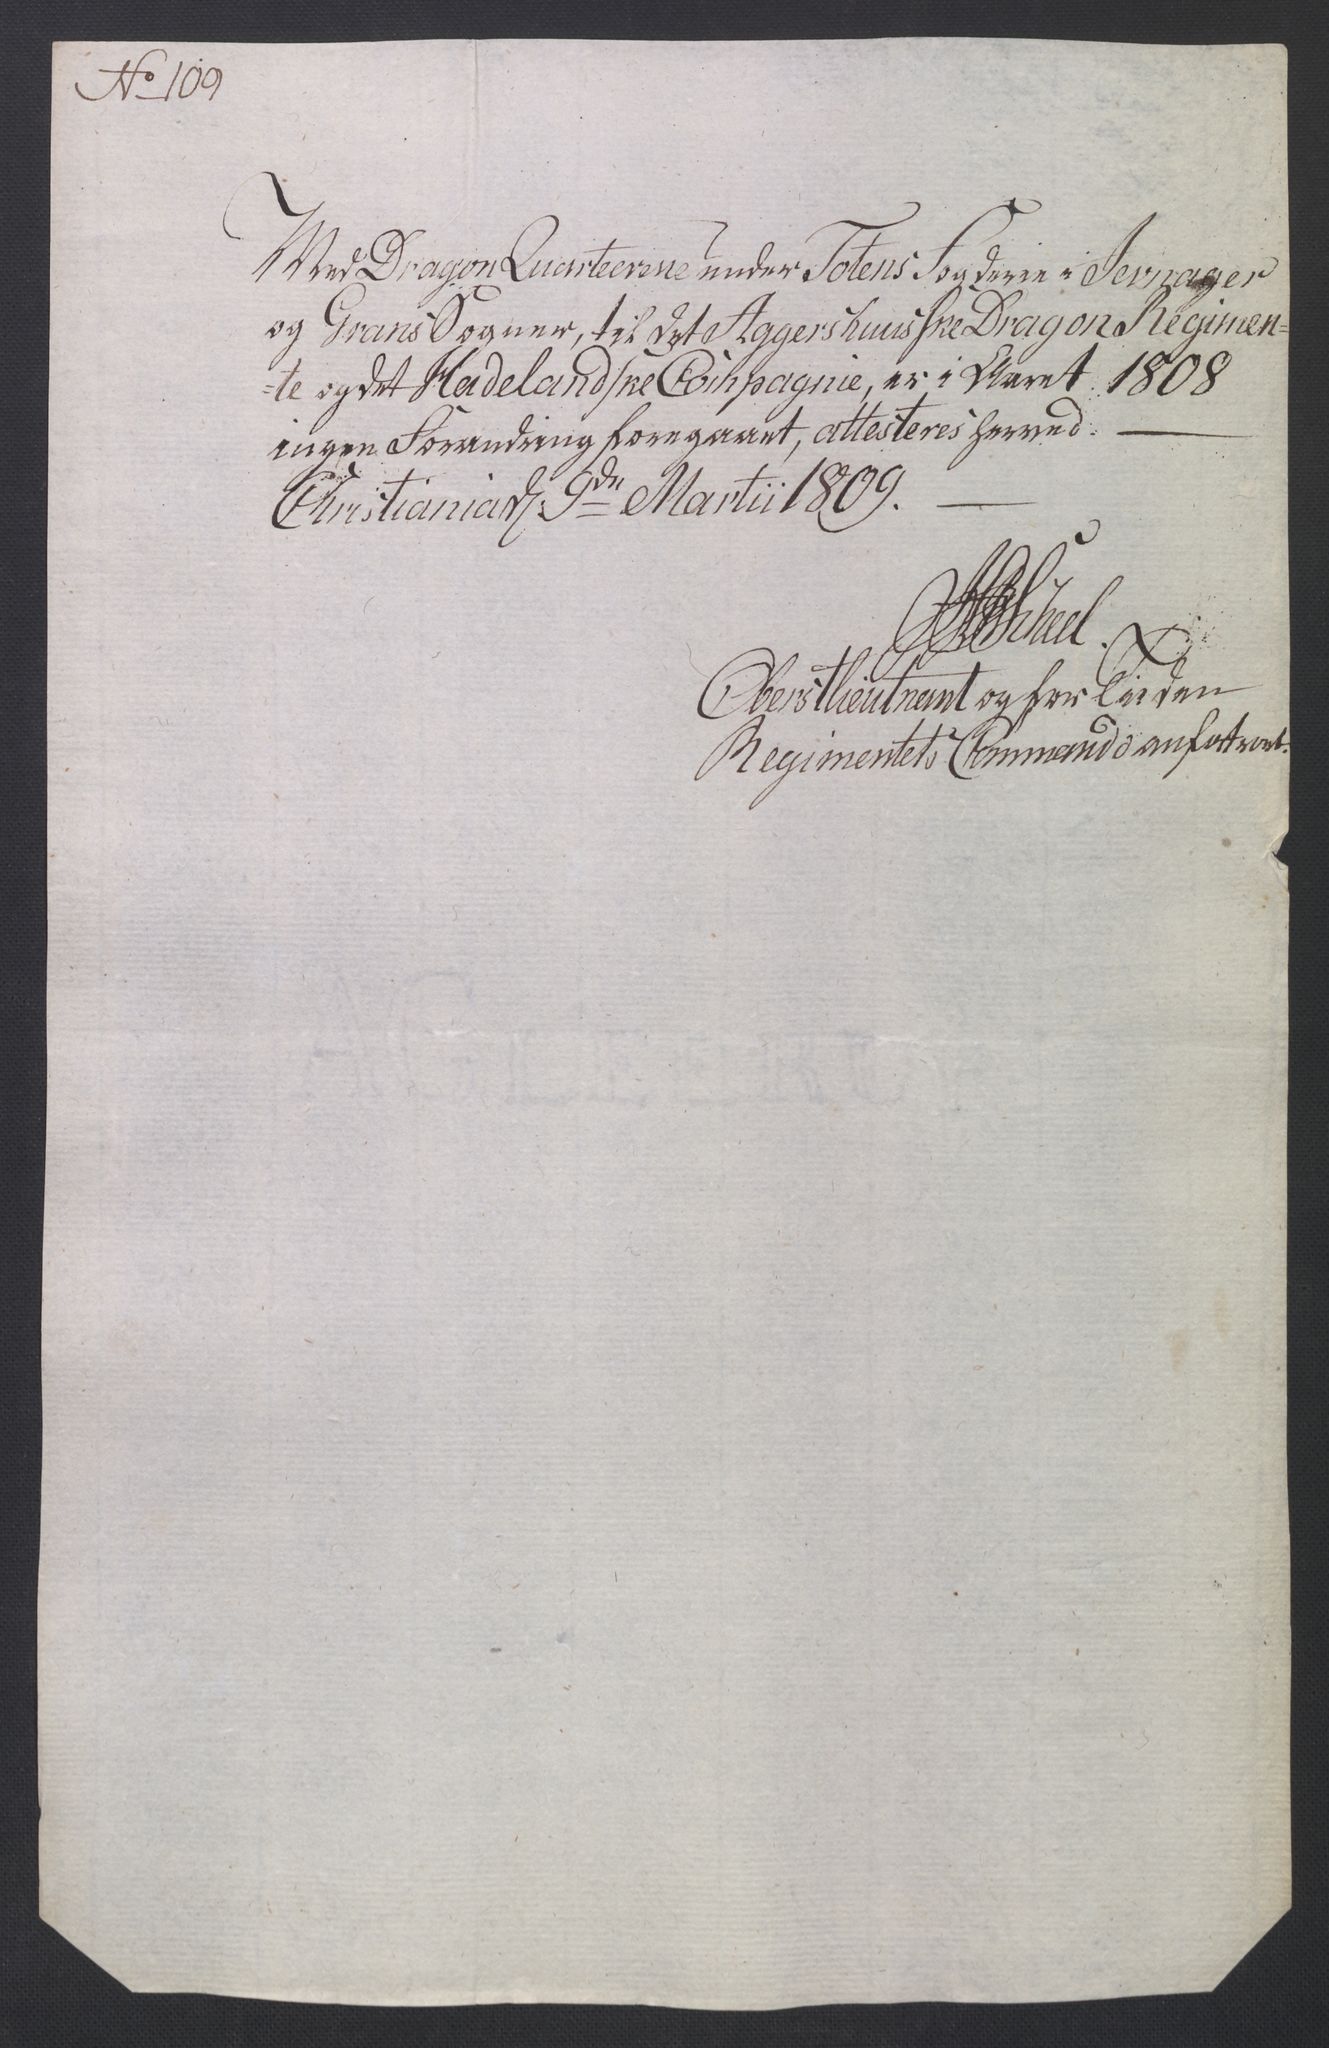 No 109
Ved Dragon Quarteerene under Totens Fogderie i Jevnager
og Grans Sogner, til det Aggershuusske Dragon Regimen=
=te og det Hadelandske Compagnie, er i Aaret 1808
ingen Forandring foregaaet, attesteres herved.
Christiania d. 9de Martii 1809.
Scheel.
Oberstlieutnant og for Tiiden
Regimentets Commando anfortroet.